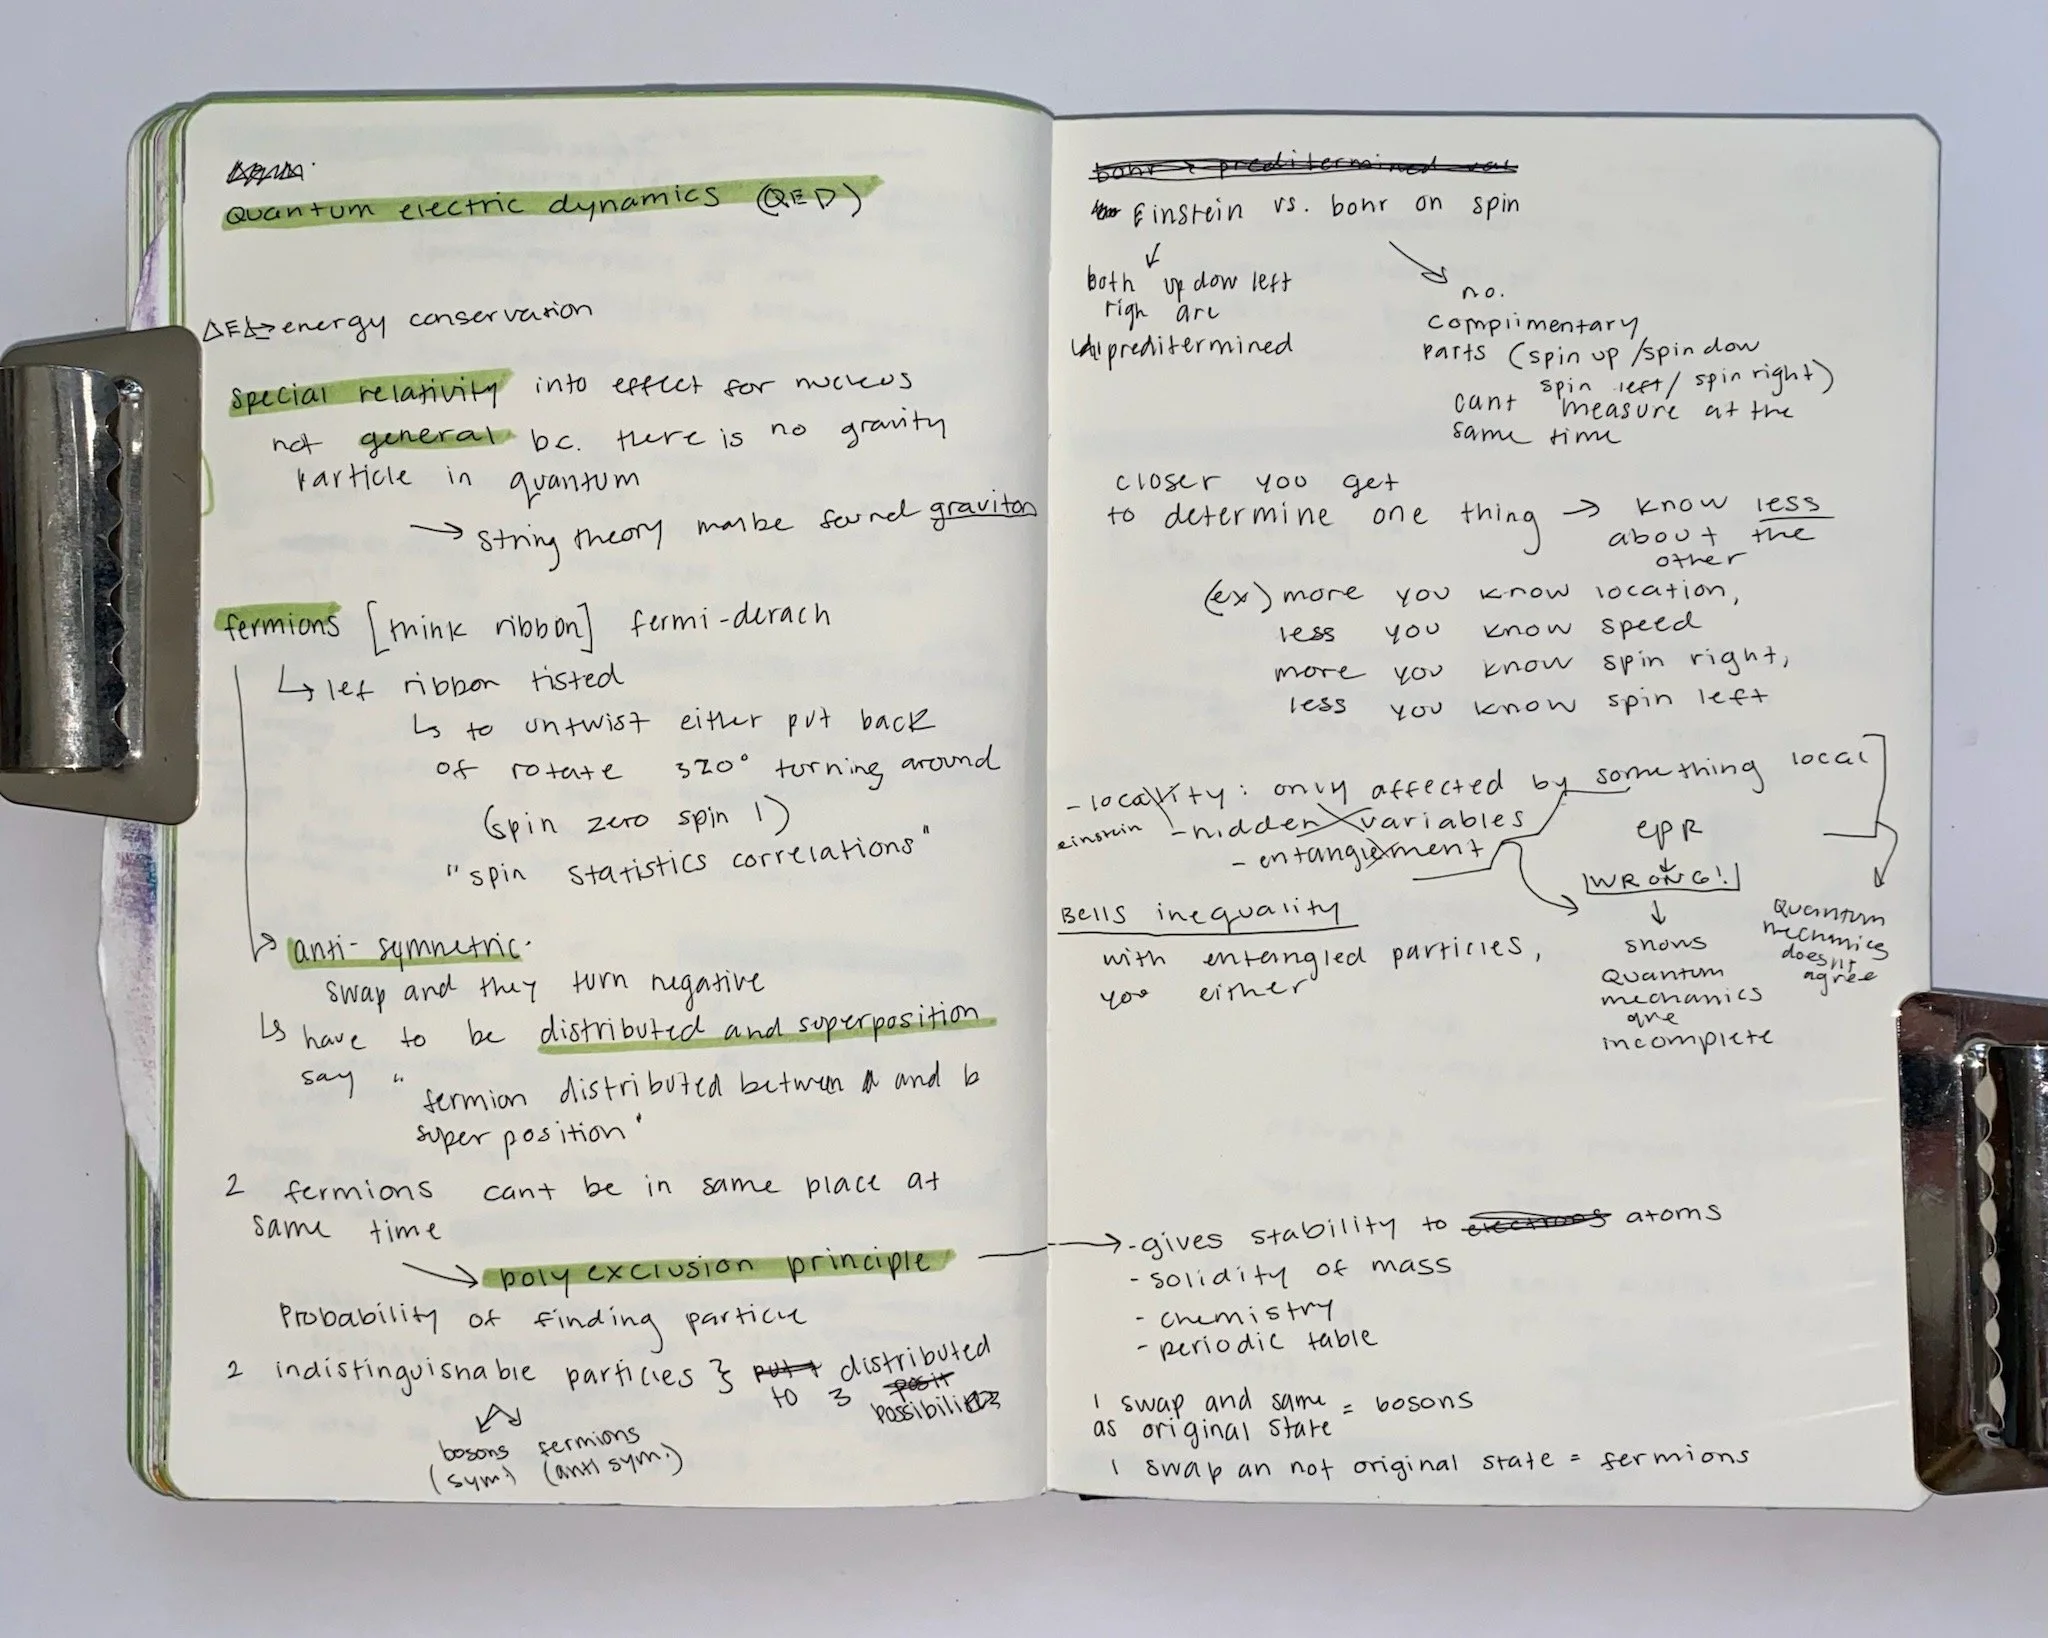 Quantum electric dynamics (QED)
ΔE → energy conservation
special relativity into effect for nucleus
not general bc. there is no gravity
particle in quantum
→ string theory maybe found graviton
fermions [think ribbon] fermi-derach
↳ lef ribbon tisted
↳ to untwist either put back
of rotate 320° turning around
(spin zero spin 1)
"spin statistics correlations"
→ anti-symnetric.
swap and they turn negative
↳ have to be distributed and superposition
say "fermion distributed between a and b
super position"
2 fermions cant be in same place at
same time
→ poly exclusion principle
Probability of finding particle
2 indistinguishable particles } distributed
to 3
possibilities
bosons fermions
(sym.) (anti sym.)
Einstein vs. bohr on spin
both up dow left
righ are
preditermined
no.
complimentary
parts (spin up / spin dow
spin left / spin right)
cant measure at the
same time
closer you get
to determine one thing → know less
about the
other
(ex) more you know location,
less you know speed
more you know spin right,
less you know spin left
- locality: only affected by something local
einstein - hidden variables
- entanglement
EPR
WRONG!
shows
Quantum
mechanics
are
incomplete
Quantum
mechanics
doesnt
agree
Bells inequality
with entangled particles,
you either
→ - gives stability to atoms
- solidity of mass
- chemistry
- periodic table
1 swap and same = bosons
as original state
1 swap an not original state = fermions